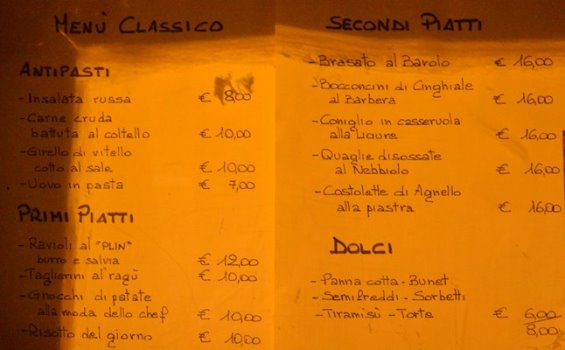 MENÙ CLASSICO
ANTIPASTI
- Insalata russa € 8,00
- Carne cruda
battuta al coltello € 10,00
- Girello di vitello
cotto al sale € 10,00
- Uovo in pasta € 7,00
PRIMI PIATTI
- Ravioli al "PLIN"
burro e salvia € 12,00
- Taglierini al ragù € 10,00
- Gnocchi di patate
alla moda dello chef € 10,00
- Risotto del giorno € 10,00
SECONDI PIATTI
- Brasato al Barolo € 16,00
- Bocconcini di Cinghiale
al Barbera € 16,00
- Coniglio in casseruola
alla Ligure € 16,00
- Quaglie disossate
al Nebbiolo € 16,00
- Costolette di Agnello
alla piastra € 16,00
DOLCI
- Panna cotta - Bunet
- Semifreddi - Sorbetti
- Tiramisù - Torte € 6,00
8,00